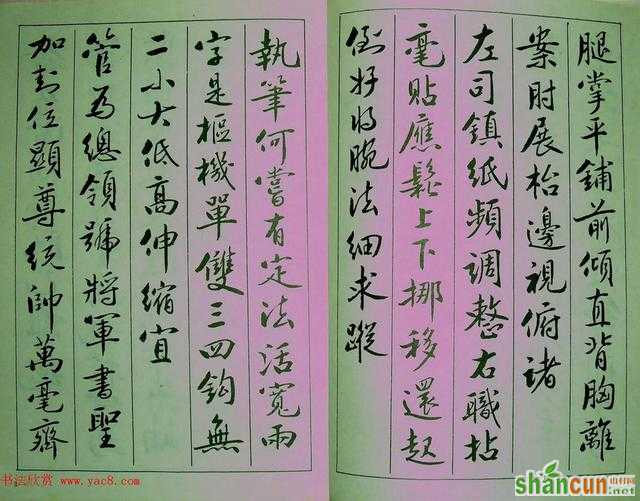 腿掌平鋪前傾直背胸離
案肘展枱邊視俯諸
左司鎮紙頻調整右職拈
毫貼應鬆上下挪移還起
倒好將腕法細求蹤
執筆何嘗有定法活寬兩
字是樞機單雙三四鈎無
二小大低高伸縮宜
管為總領號將軍書聖
加封位顯尊統帥萬毫齊
书法欣赏 www.yac8.com
shancun
山村网
.net